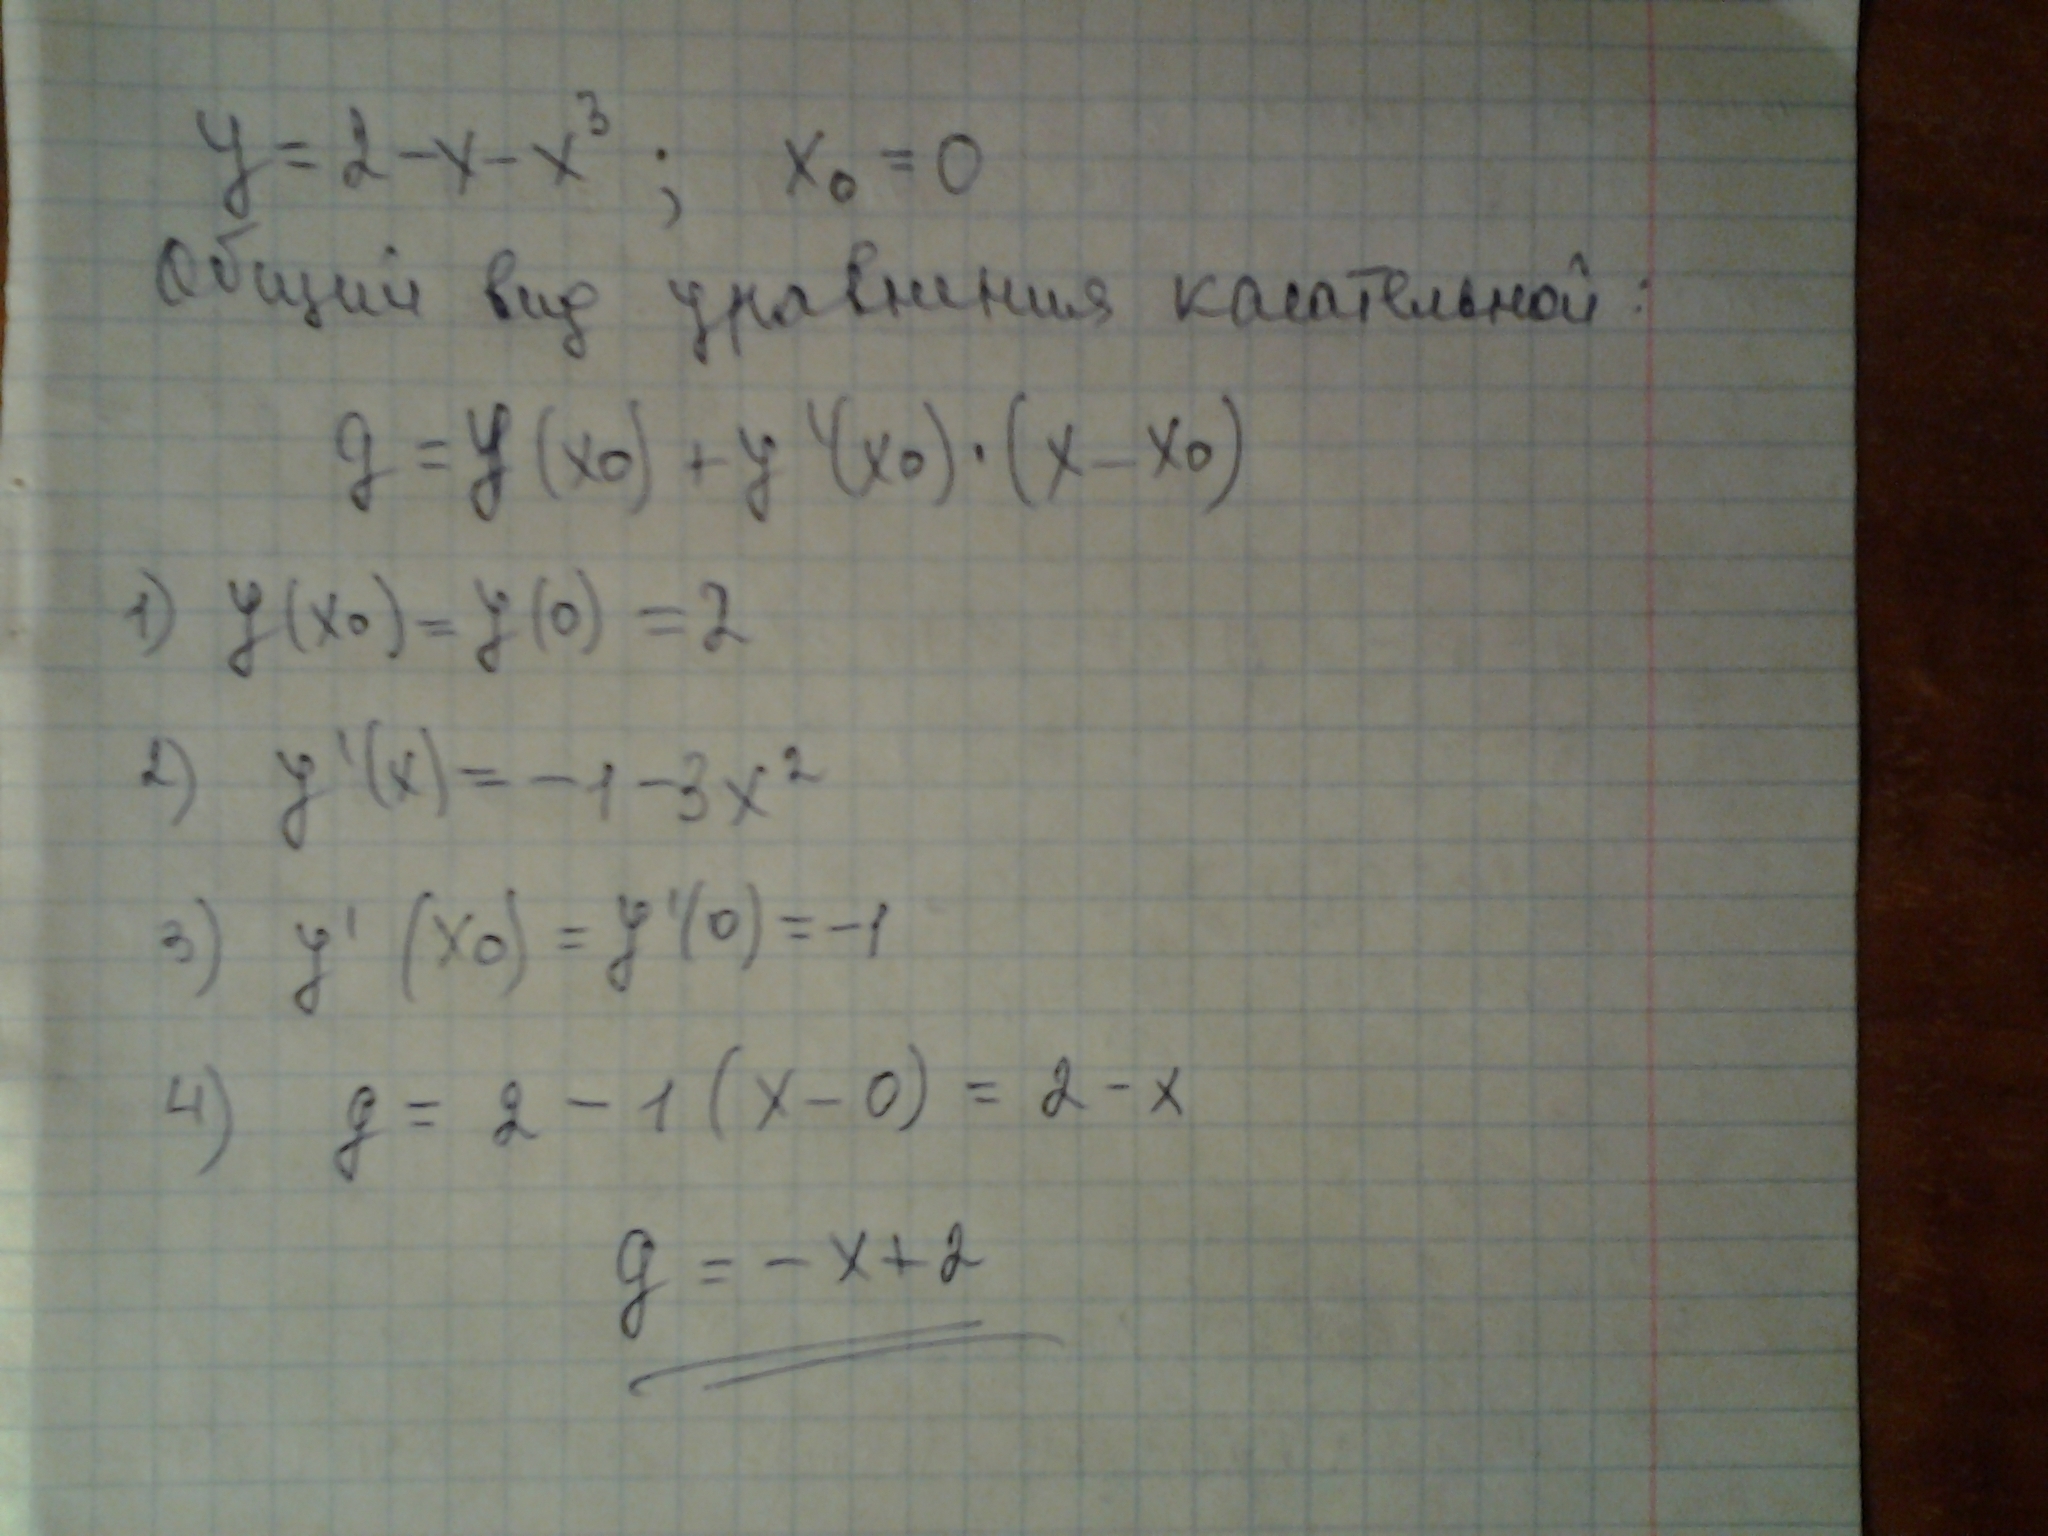 y = 2 - x - x³ ; x₀ = 0
Общий вид уравнения касательной:
y = y(x₀) + y'(x₀)·(x - x₀)
1) y(x₀) = y(0) = 2
2) y'(x) = -1 - 3x²
3) y'(x₀) = y'(0) = -1
4) y = 2 - 1(x - 0) = 2 - x
y = -x + 2